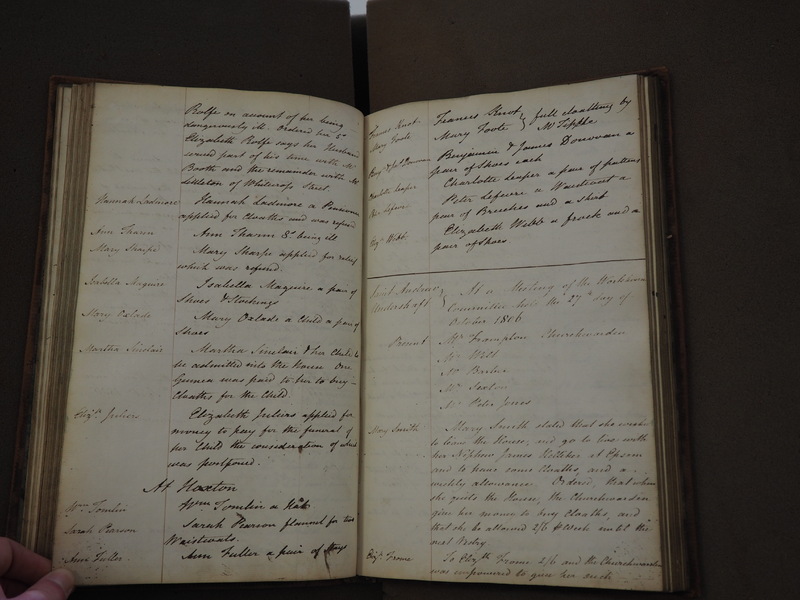 Rolfe on account of her being
dangerously ill. Ordered her
Elizabeth Rolfe says her Husband
served part of his time with Mr
Booth and the remainder with Mr
of Whitecross Street.
Hannah Ladmore Hannah Ladmore a Pensioner
applied for Cloaths and was refused
Ann Thasm Ann Thasm being ill
Mary Sharpe Mary Sharpe applied for relief
which was refused.
Isabella Maguire Isabella Maguire a pair of
Shoes & Stockings
Mary Oxlade Mary Oxlade a Child a pair of
Shoes
Martha Sinclair Martha Sinclair & her Child to
be admitted into the House One
Guinea was paid to her to buy
Cloaths for the Child.
Elizth Julius Elizabeth Julius applied for
money to pay for the funeral of
her Child the consideration of which
was postponed.
At Hoxton
Wm Tomlin Wm Tomlin a Hat
Sarah Pearson Sarah Pearson flannel for two
Waistcoats.
Ann Fuller Ann Fuller a pair of Stays
Frances Hunt Frances Hunt } full cloathing by
Mary Foote Mary Foote } Mr Tipple
Benj & Jas Donovan Benjamin & James Donovan a
pair of Shoes each
Charlotte Leaper Charlotte Leaper a pair of pattens
Peter Lefevre Peter Lefevre a Waistcoat a
pair of Breeches and a shirt
Elizth Webb Elizabeth Webb a frock and a
pair of Shoes
Saint Andrew } At a Meeting of the Workhouse
Undershaft } Committee held the 27th day of
October 1806
Present Mr Frampton Churchwarden
Mr West
Mr Barber
Mr Sexton
Mr Peter Jones
Mary Smith Mary Smith stated that she wished
to leave the House, and go to live with
her Nephew James at Epsom
and to have some Cloaths, and a
weekly allowance. Ordered, that when
she quits the House, the Churchwarden
give her money to buy Cloaths, and
that she be allowed 2/6 Week until the
next Vestry.
Elizth Frome To Elizth Frome 2/6 and the Churchwarden
was empowered to give her such